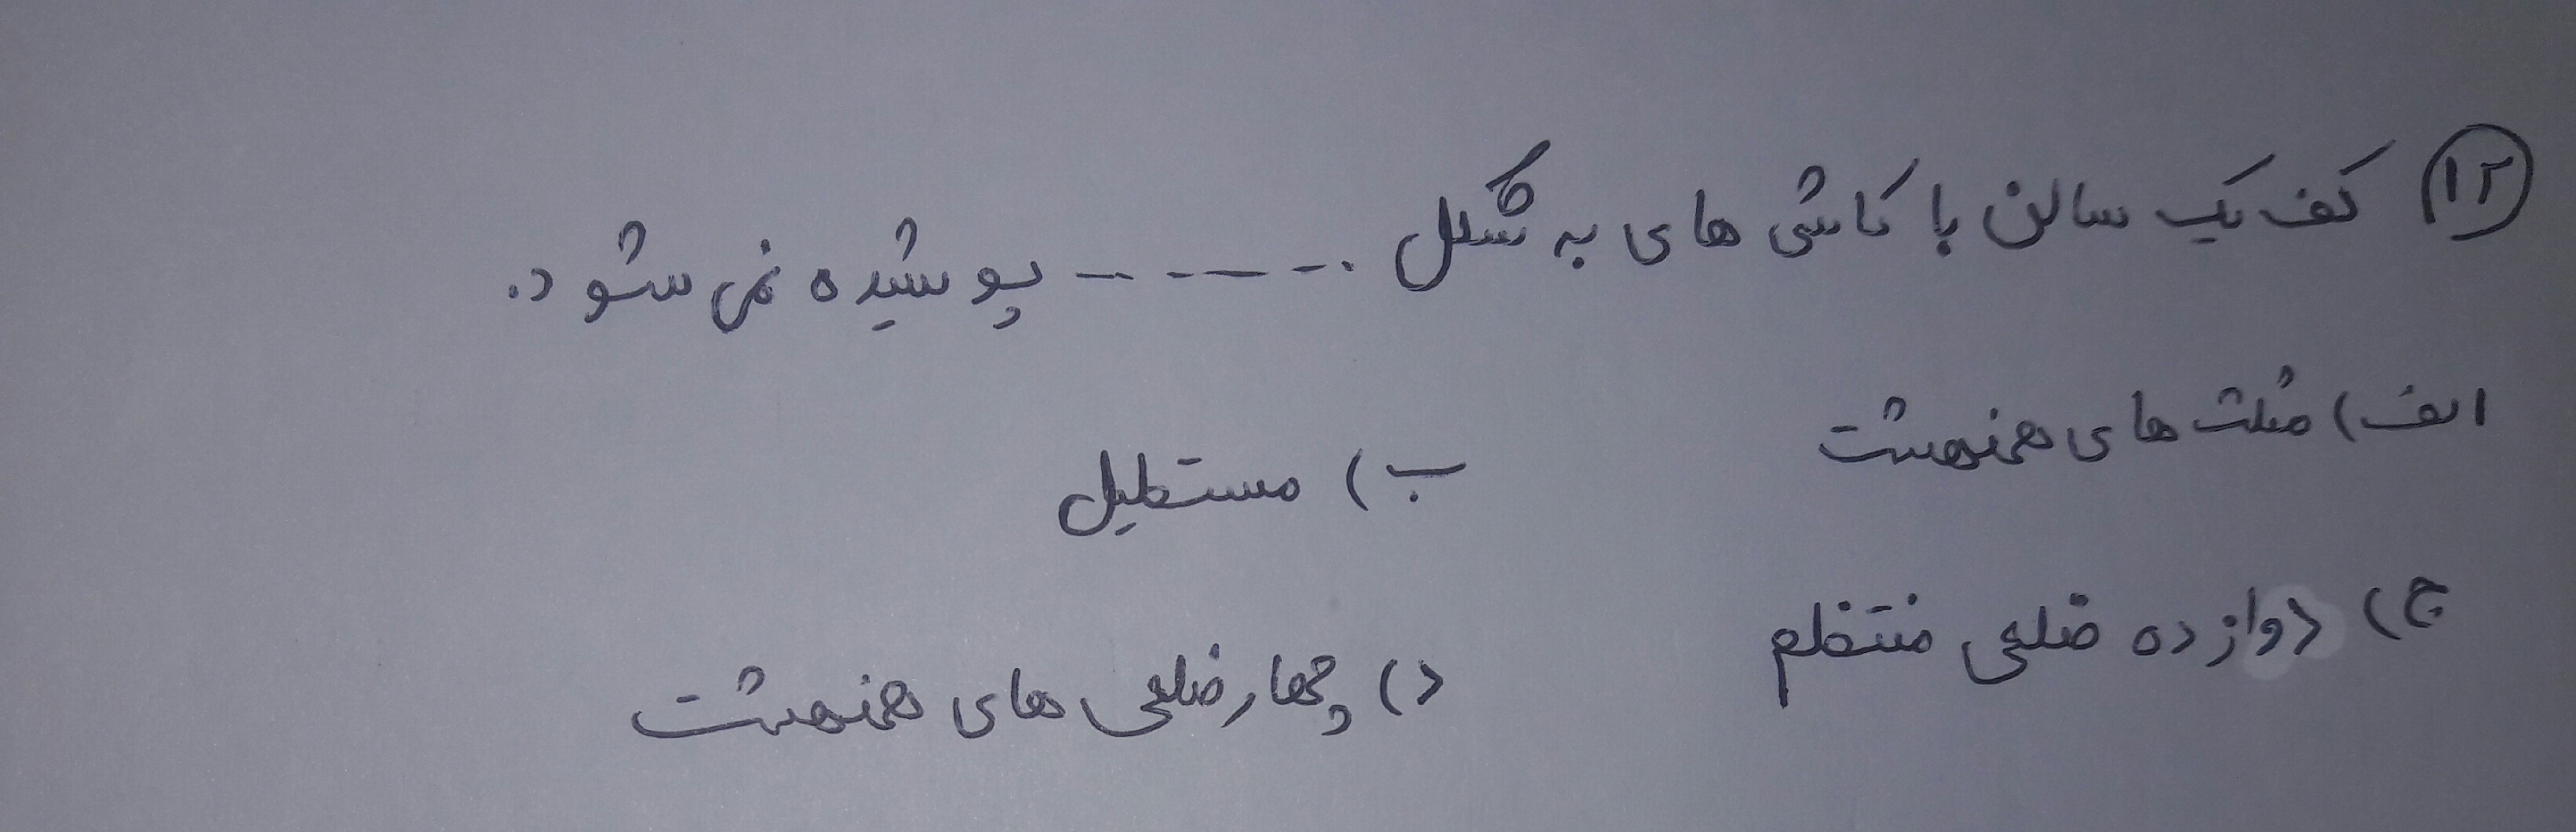 ۱۲ کف یک سالن با کاشی های به شکل ------ پوشیده نمی شود.
الف) مثلث های همنهشت
ب) مستطیل
ج) دوازده ضلعی منتظم
د) چهارضلعی های همنهشت